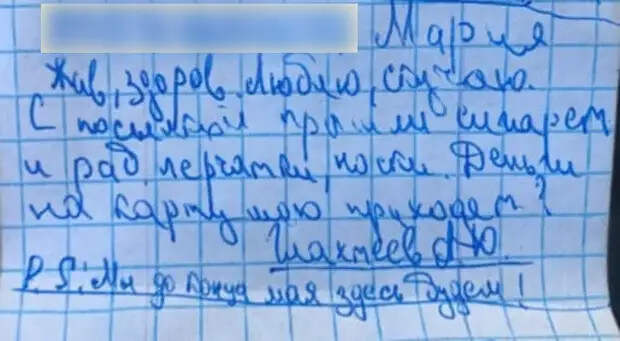 Мария
Жив, здоров, люблю, скучаю.
С посылкой пришли сигарет
и рад, перчатки, носки. Деньги
на карту мою приходят?
Шахтеев А.Ю.
P.S.: Мы до конца мая здесь будем!